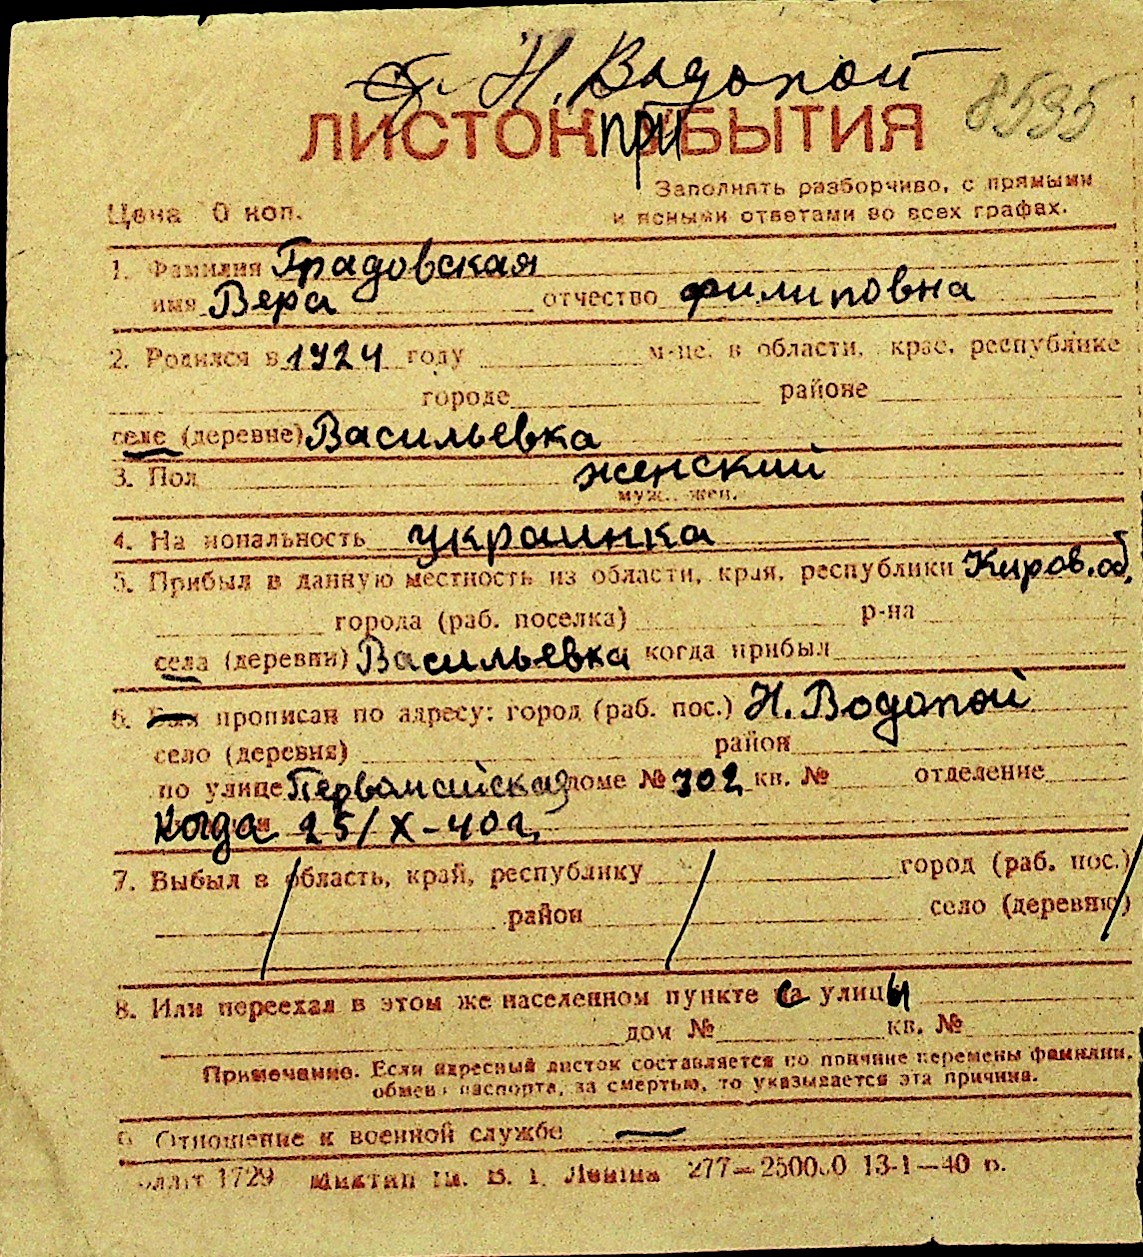 Н. Водопой
ЛИСТОК ПРИБЫТИЯ 8595
Заполнять разборчиво, с прямыми
Цена 0 коп. и ясными ответами во всех графах.
1. Фамилия Градовская
имя Вера отчество филиповна
2. Родился в 1924 году м-це, в области, крае, республике
городе районе
селе (деревне) Васильевка
3. Пол женский
муж., жен.
4. Национальность украинка
5. Прибыл в данную местность из области, края, республики Киров. об.
города (раб. поселка) р-на
села (деревни) Васильевка когда прибыл
6. прописан по адресу: город (раб. пос.) Н. Водопой
село (деревня) район
по улице Первомайская доме № 302 кв. № отделение
Когда 25/X-40 г.
7. Выбыл в область, край, республику город (раб. пос.)
район село (деревню)
8. Или переехал в этом же населенном пункте с улицы
дом № кв. №
Примечание. Если адресный листок составляется по причине перемены фамилии,
обмена паспорта, за смертью, то указывается эта причина.
9. Отношение к военной службе —
1729 им. В. І. Леніна 277—250000 13-1—40 р.